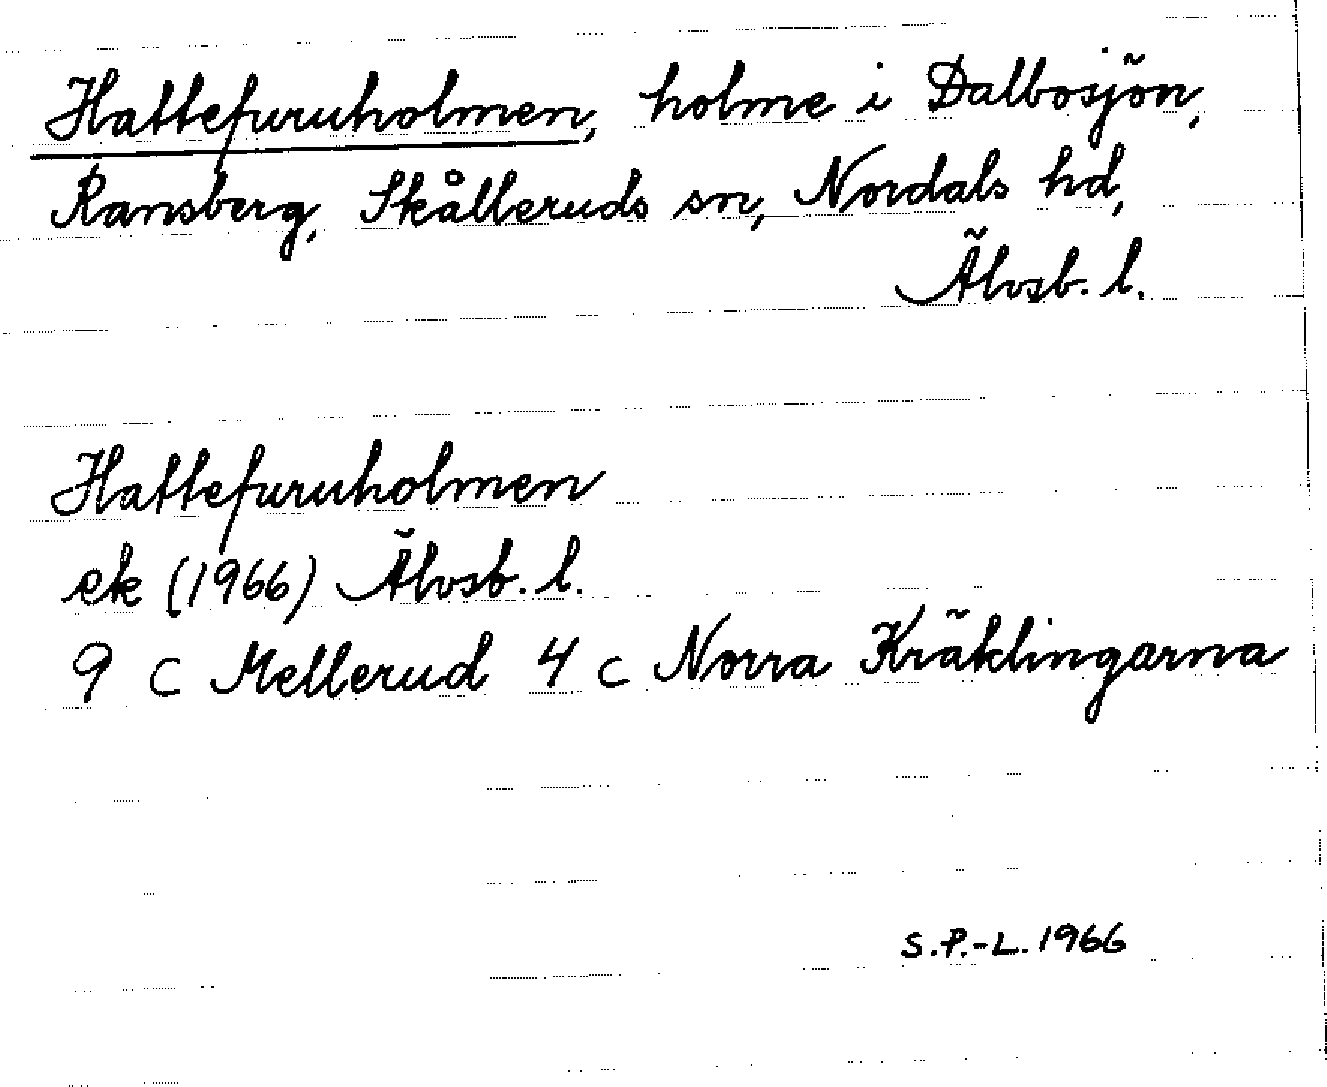 Hattefuruholmen, holme i Dalbosjön,
Ransberg, Skålleruds sn, Nordals hd,
Älvsb. l.
Hattefuruholmen
ek (1966) Älvsb. l.
9 c Mellerud 4 c Norra Kräklingarna
S.P.-L. 1966